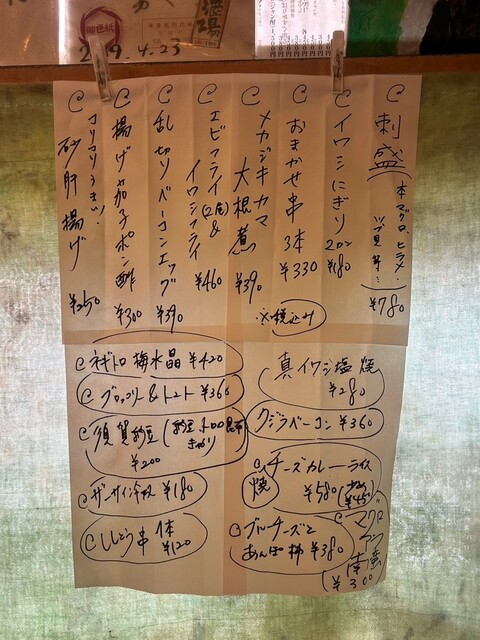 刺盛 本マグロ、ヒラメ、
ツブ貝 等…
¥780
イワシにぎり
2コ ¥180
おまかせ串
3本
¥330
メカジキカマ
大根煮
¥390
エビフライ(2尾)&
イワシフライ
¥460
乱切りベーコンエッグ
¥390
揚げ茄子ポン酢
¥300
コリコリうまい!
砂肝揚げ
¥250
※税込み
ネギトロ梅水晶 ¥420
ブロッコリー&トマト ¥360
須賀納豆(納豆、トロロ昆布
きゅうり)
¥200
ザーサイ冷奴 ¥180
ししとう串 1本
¥120
真イワシ塩焼
¥280
クジラベーコン ¥360
焼チーズカレーライス
¥580
¥450
ブルーチーズと
あんぽ柿 ¥380
マグロ
南蛮
¥300
2019.4.23
酒場